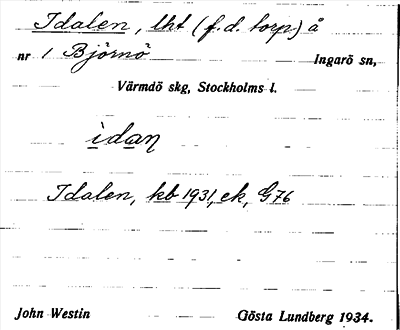 Idalen, lht (f.d. torp) å
nr 1 Björnö Ingarö sn,
Värmdö skg, Stockholms l.
idan
Idalen, kb 1931, ek, G76
John Westin Gösta Lundberg 1934.